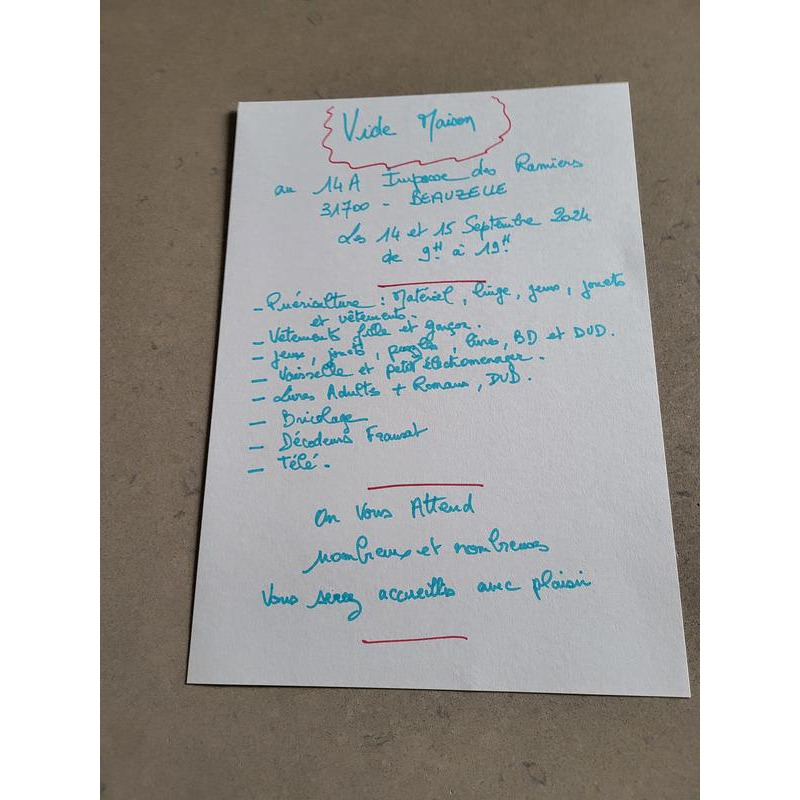 Vide Maison
au 14A Impasse des Ramiers
31700 - BEAUZELLE
Les 14 et 15 Septembre 2024
de 9H à 19H
- Puériculture : Matériel, linge, jeux, jouets
et vêtements.
- Vêtements fille et garçon.
- Jeux, jouets, puzzles, livres, BD et DVD.
- Vaisselle et petit électroménager.
- Livres Adultes + Romans, DVD.
- Bricolage
- Décodeurs Fransat
- Télé.
On Vous Attend
nombreux et nombreuses
Vous serez accueillis avec plaisir